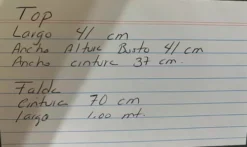 Top
Largo 41 cm
Ancho Altura Busto 41 cm
Ancho cintura 37 cm.
Falda
Cintura 70 cm
largo 1.00 mt.